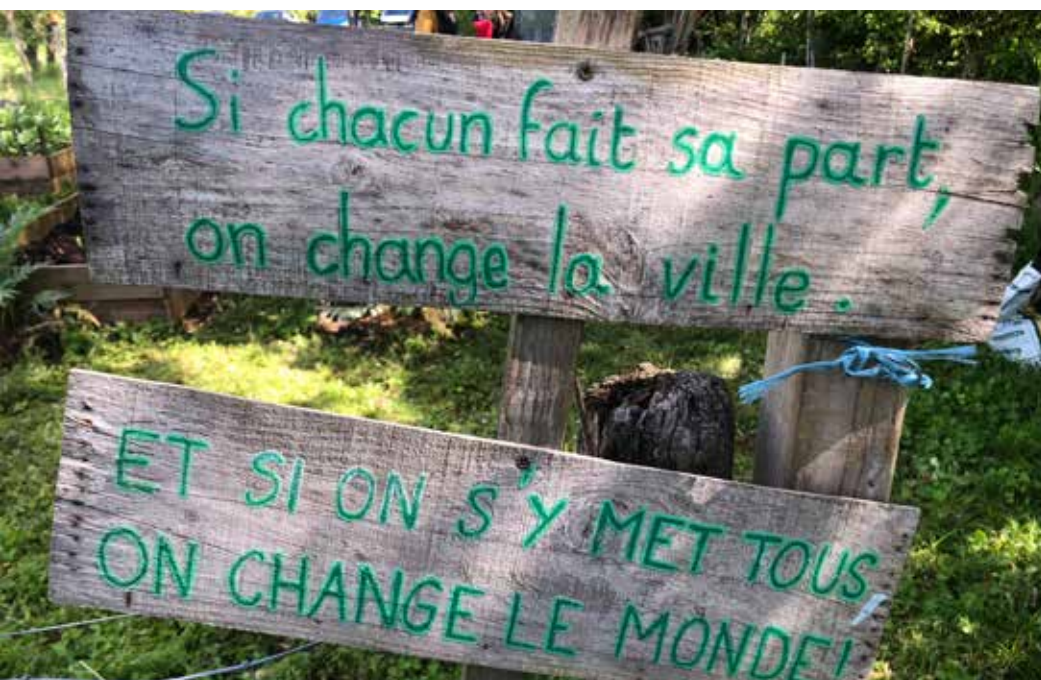 Si chacun fait sa part,
on change la ville.
ET SI ON S'Y MET TOUS
ON CHANGE LE MONDE!